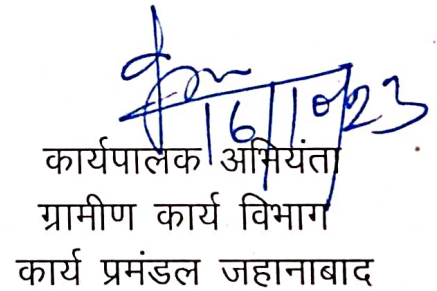 16/10/23
कार्यपालक अभियंता
ग्रामीण कार्य विभाग
कार्य प्रमंडल जहानाबाद